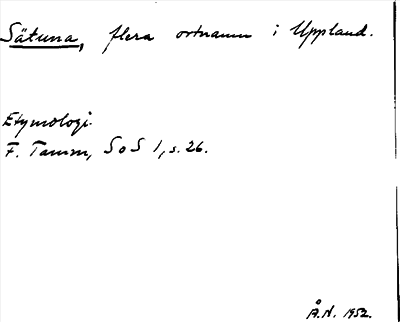 Sätuna, flera ortnamn i Uppland.
Etymologi.
F. Tamm, SoS 1, s. 26.
Å.N. 1952.